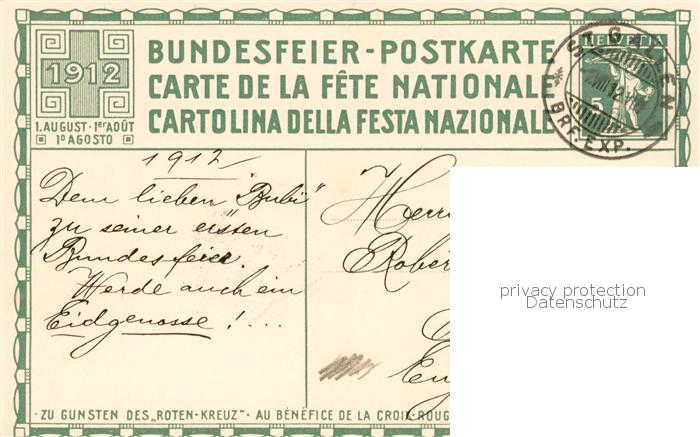 1912
1. AUGUST · 1er AOÛT
1º AGOSTO
BUNDESFEIER-POSTKARTE
CARTE DE LA FÊTE NATIONALE
CARTOLINA DELLA FESTA NAZIONALE
HELVETIA
5
ST. GALLEN
BRF. EXP.
1912
Dem lieben "Bubi"
zu seiner ersten
Bundesfeier.
Werde auch ein
Eidgenosse! ...
Herrn
Rober
privacy protection
Datenschutz
· ZU GUNSTEN DES „ROTEN-KREUZ" · AU BÉNÉFICE DE LA CROIX-ROUG